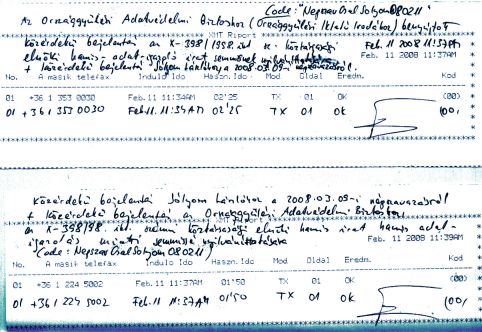 Code: "NepszavSzalSolyom080211"
Az Országgyűlési Adatvédelmi Biztoshoz (Országgyűlési Iktató Irodához) benyújtott
XMT Riport
közérdekű bejelentés az X-398/1998. ikt. sz. köztársasági
Feb. 11 2008 11:37PM
elnöki hamis adat-igazoló irat semmissé nyilvánítására
Feb 11 2008 11:37AM
+ közérdekű bejelentés Sólyom Lászlónak a 2008.03.09-i népszavazásról.
No. A masik telefax Indulo Ido Haszn.Ido Mod Oldal Eredm. Kod
01 +36 1 353 0030 Feb.11 11:34AM 02'25 TX 01 OK (00)
01 +36 1 353 0030 Feb.11. 11:34AM 02'25 TX 01 OK (00)
közérdekű bejelentés Sólyom Lászlónak a 2008.03.09-i népszavazásról
+ közérdekű bejelentés az Országgyűlési Adatvédelmi Biztoshoz
XMT Riport
az X-398/98. ikt. számú köztársasági elnöki hamis irat hamis adat-
igazolás miatti semmissé nyilvánítására
Feb 11 2008 11:39AM
Code:
No. A masik telefax Indulo Ido Haszn.Ido Mod Oldal Eredm. Kod
01 +36 1 224 5002 Feb.11 11:37AM 01'50 TX 01 OK (00)
01 +36 1 224 5002 Feb. 11. 11:37AM 01'50 TX 01 OK (00)